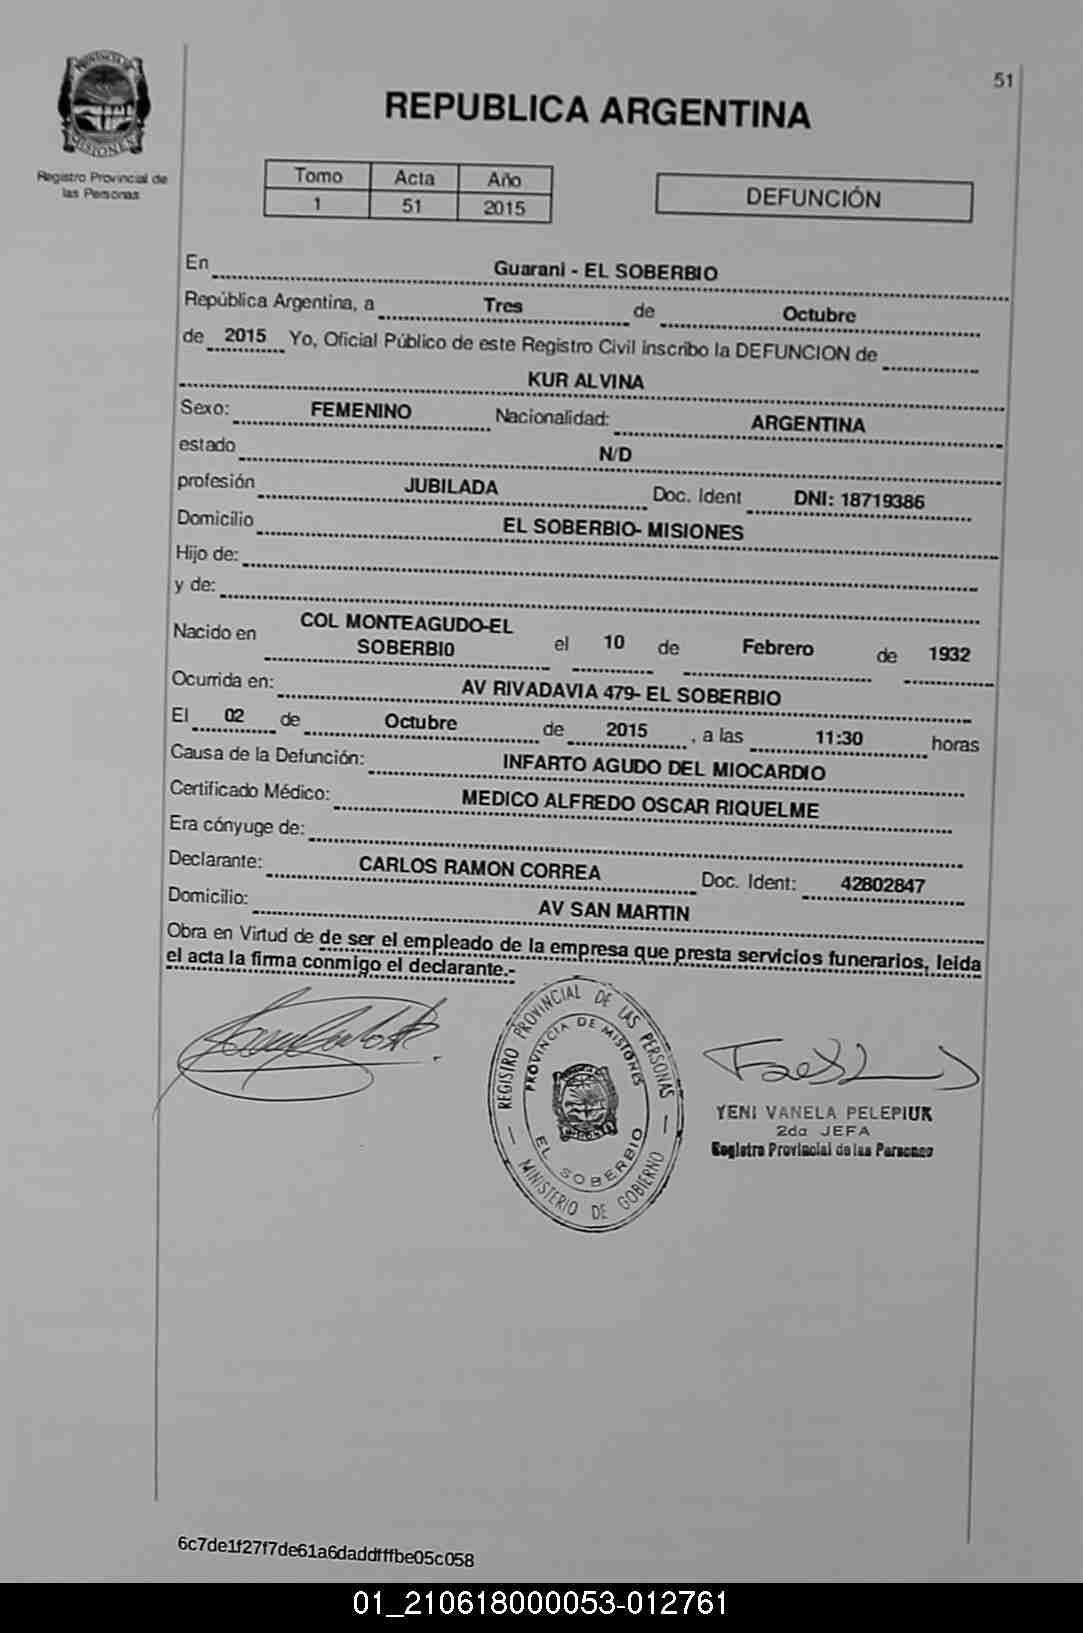 51
PROVINCIA DE
MISIONES
Registro Provincial de
las Personas
REPUBLICA ARGENTINA
Tomo Acta Año
1 51 2015
DEFUNCIÓN
En Guarani - EL SOBERBIO
República Argentina, a Tres de Octubre
de 2015 Yo, Oficial Público de este Registro Civil inscribo la DEFUNCION de
KUR ALVINA
Sexo: FEMENINO Nacionalidad: ARGENTINA
estado N/D
profesión JUBILADA Doc. Ident DNI: 18719386
Domicilio EL SOBERBIO- MISIONES
Hijo de:
y de:
Nacido en COL MONTEAGUDO-EL SOBERBIO el 10 de Febrero de 1932
Ocurrida en: AV RIVADAVIA 479- EL SOBERBIO
El 02 de Octubre de 2015 , a las 11:30 horas
Causa de la Defunción: INFARTO AGUDO DEL MIOCARDIO
Certificado Médico: MEDICO ALFREDO OSCAR RIQUELME
Era cónyuge de:
Declarante: CARLOS RAMON CORREA Doc. Ident: 42802847
Domicilio: AV SAN MARTIN
Obra en Virtud de de ser el empleado de la empresa que presta servicios funerarios, leida
el acta la firma conmigo el declarante.-
REGISTRO PROVINCIAL DE LAS PERSONAS
PROVINCIA DE MISIONES
EL SOBERBIO
MINISTERIO DE GOBIERNO
YENI VANELA PELEPIUK
2da JEFA
Registro Provincial de las Personas
6c7de1f27f7de61a6daddfffbe05c058
01_210618000053-012761